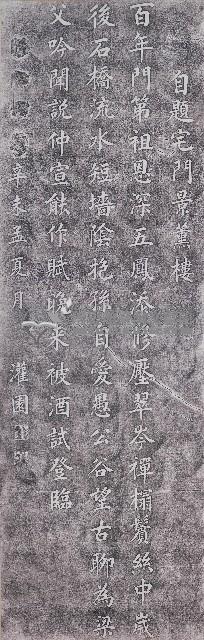 自題宅門景薰樓
百年門第祖恩深五鳳添修壓翠岑禪榻鬢絲中歲
後石橋流水短墻陰抱孫自愛愚公谷望古聊為梁
父吟聞說仲宣能作賦晚来被酒試登臨
辛未孟夏月 灌園